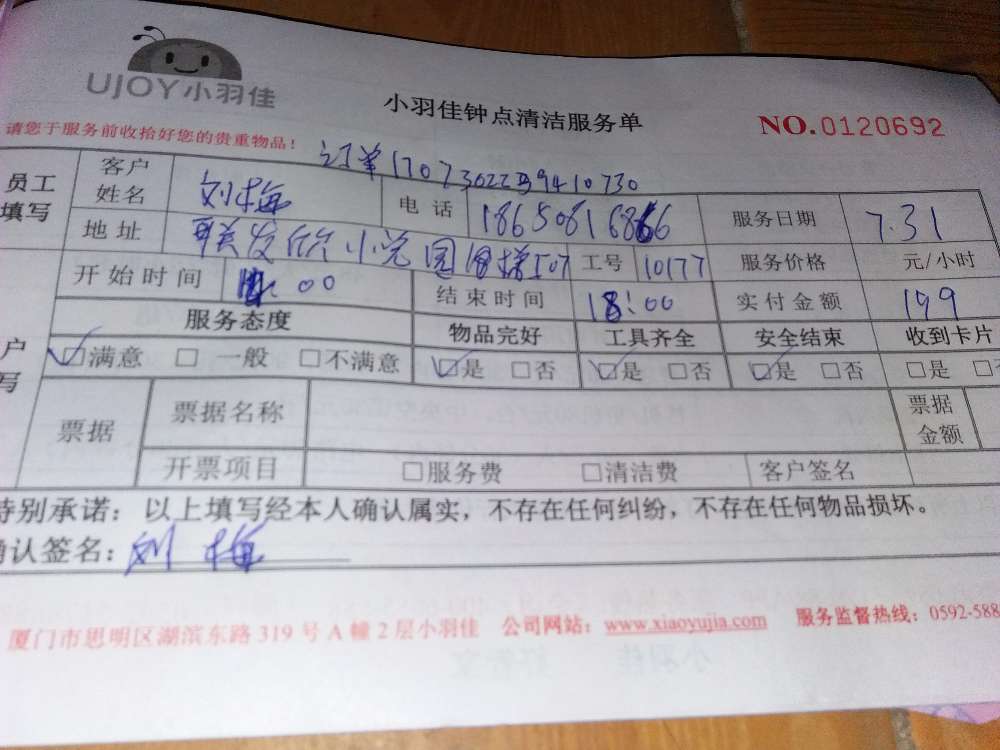 UJOY小羽佳
小羽佳钟点清洁服务单
NO.0120692
请您于服务前收拾好您的贵重物品!
订单
员工填写 客户姓名 刘梅 电话 服务日期 7.31
地址 联发欣 小学 工号 10177 服务价格 元/小时
开始时间 :00 结束时间 18:00 实付金额 199
服务态度 物品完好 工具齐全 安全结束 收到卡片
☑满意 □一般 □不满意 ☑是 □否 ☑是 □否 ☑是 □否 □是
票据 票据名称 票据金额
开票项目 □服务费 □清洁费 客户签名
特别承诺:以上填写经本人确认属实,不存在任何纠纷,不存在任何物品损坏。
确认签名:刘梅
厦门市思明区湖滨东路319号A幢2层小羽佳 公司网站:www.xiaoyujia.com 服务监督热线:0592-588